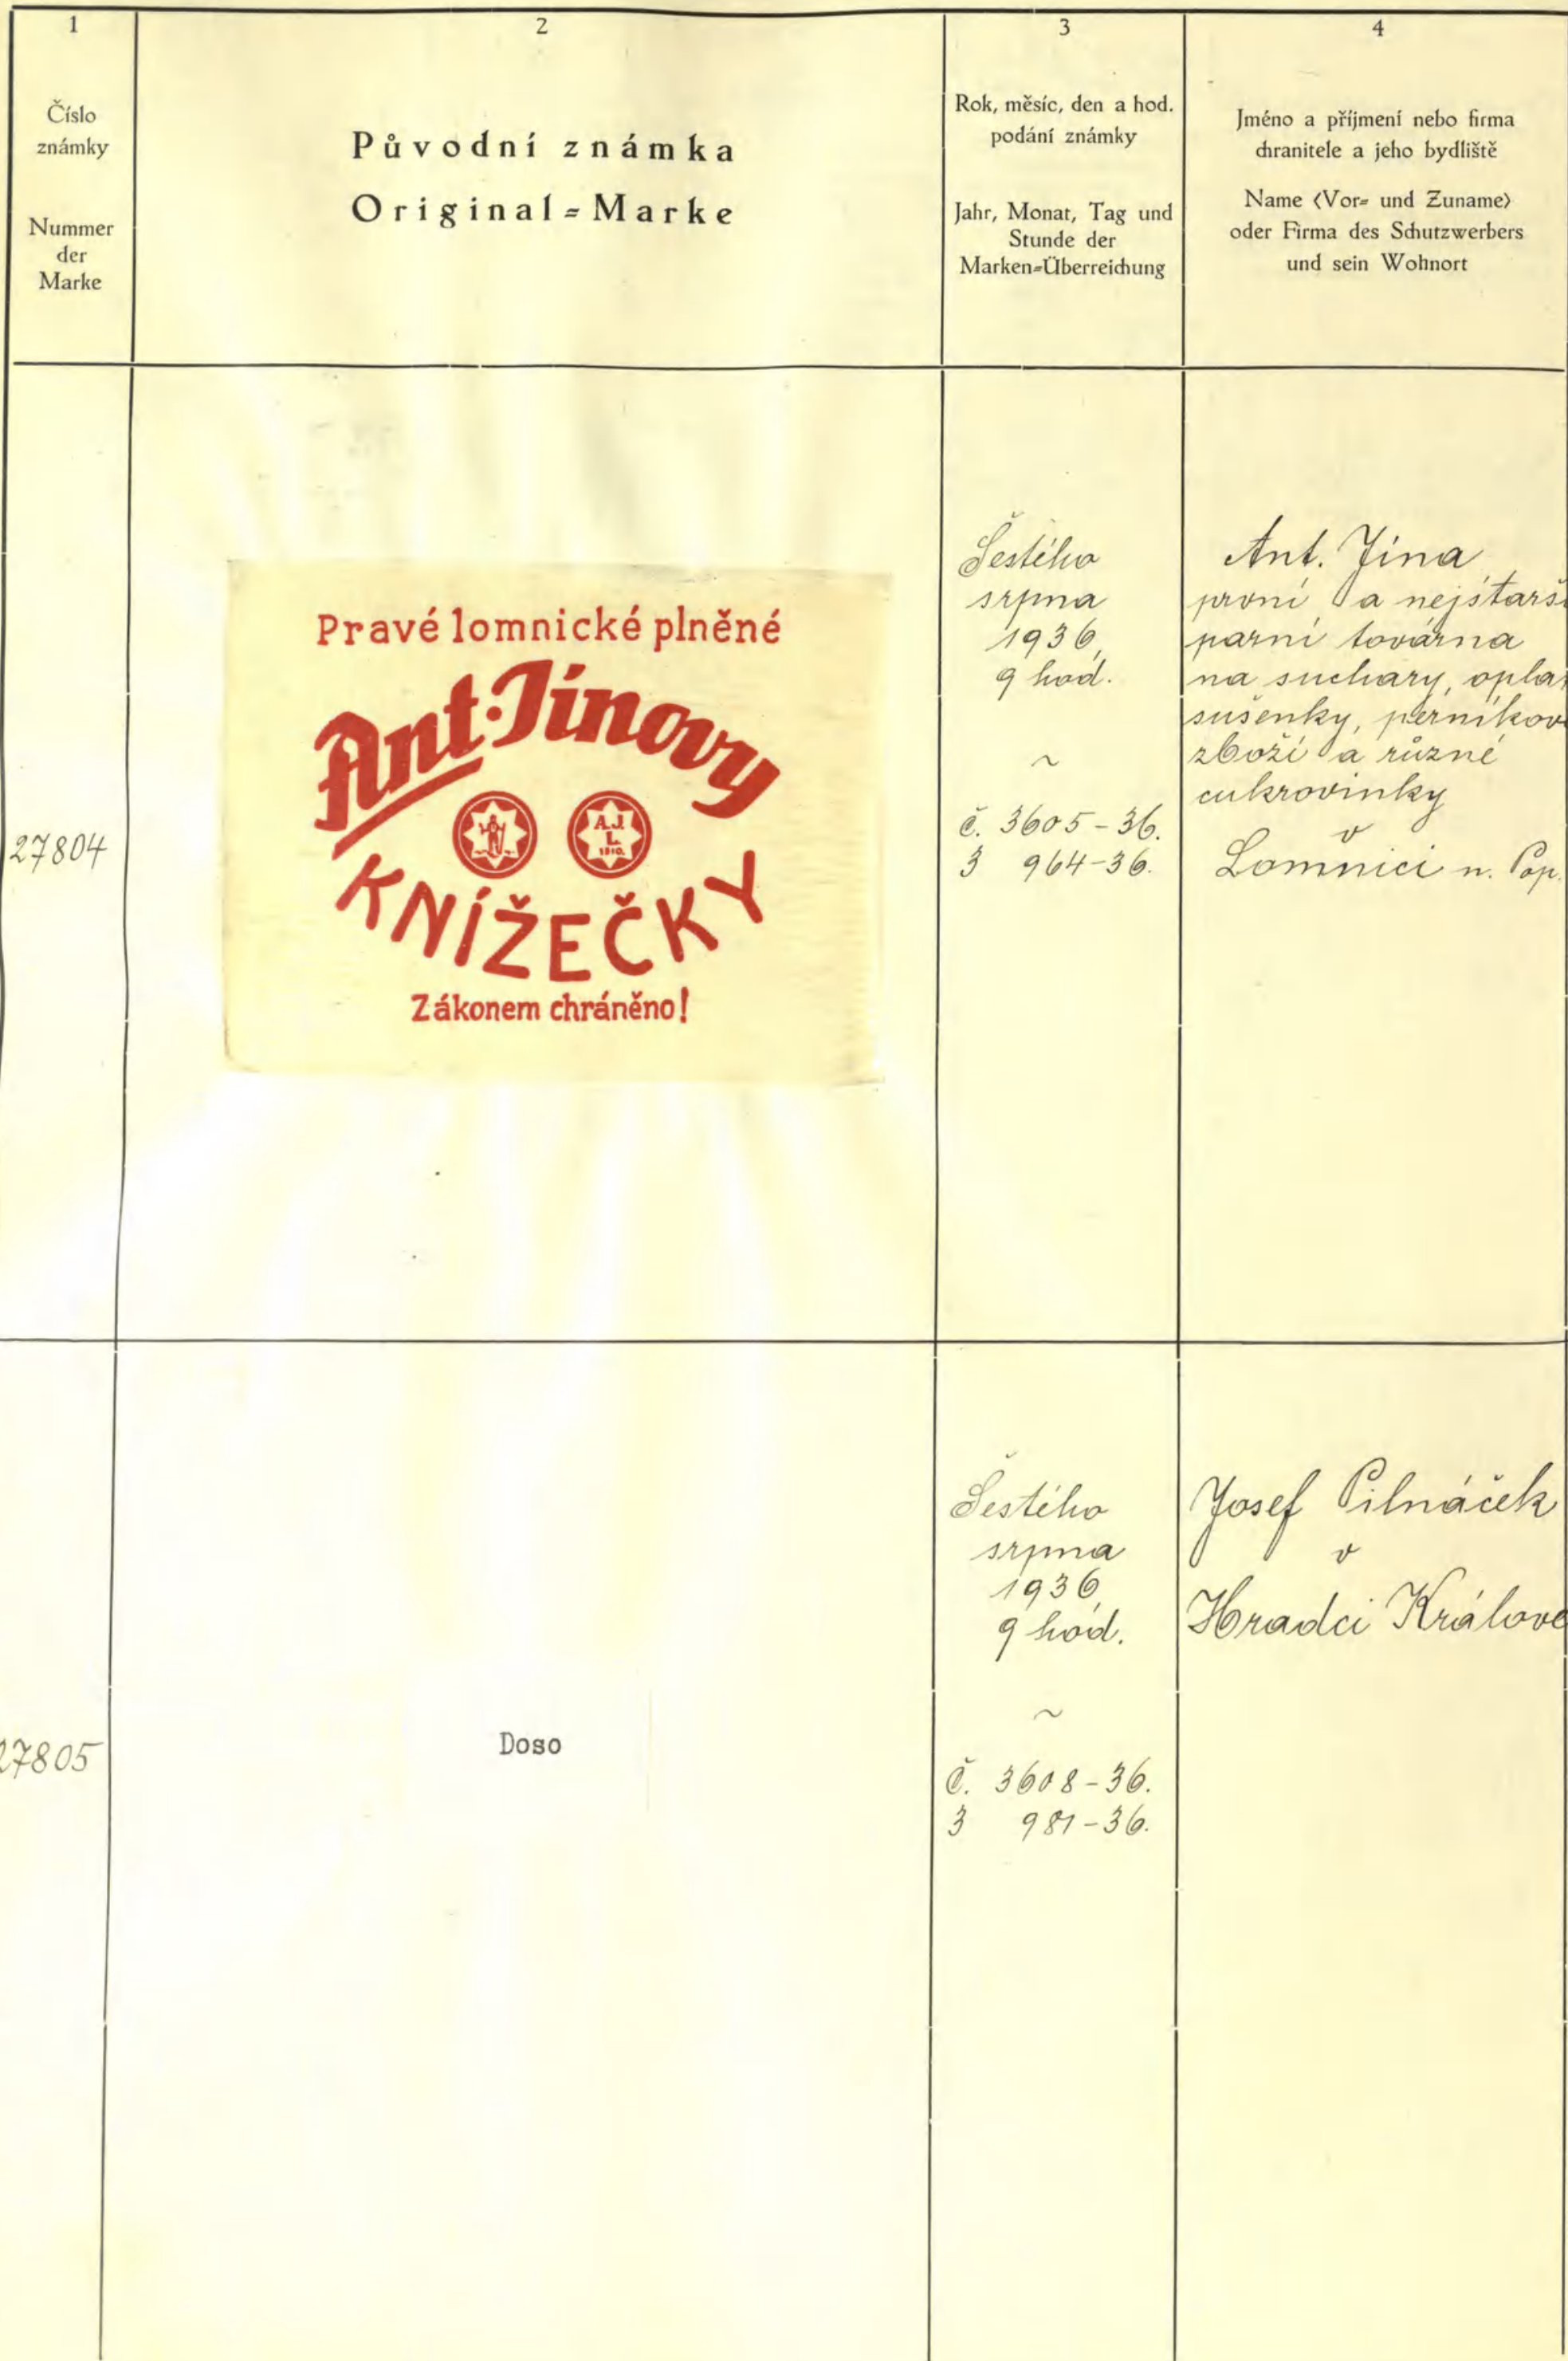 1
Číslo
známky
Nummer
der
Marke
2
Původní známka
Original=Marke
3
Rok, měsíc, den a hod.
podání známky
Jahr, Monat, Tag und
Stunde der
Marken=Überreichung
4
Jméno a příjmení nebo firma
chranitele a jeho bydliště
Name (Vor= und Zuname)
oder Firma des Schutzwerbers
und sein Wohnort
27804
Pravé lomnické plněné
Ant. Jínovy
A.J.
L.
1810.
KNÍŽEČKY
Zákonem chráněno!
Šestého
srpna
1936,
9 hod.
~
č. 3605-36.
3 964-36.
Ant. Jína
první a nejstarš
parní továrna
na suchary, opla
sušenky, perníkov
zboží a různé
cukrovinky
v
Lomnici n. Pop.
27805
Doso
Šestého
srpna
1936,
9 hod.
~
č. 3608-36.
3 981-36.
Josef Pilnáček
v
Hradci Králové